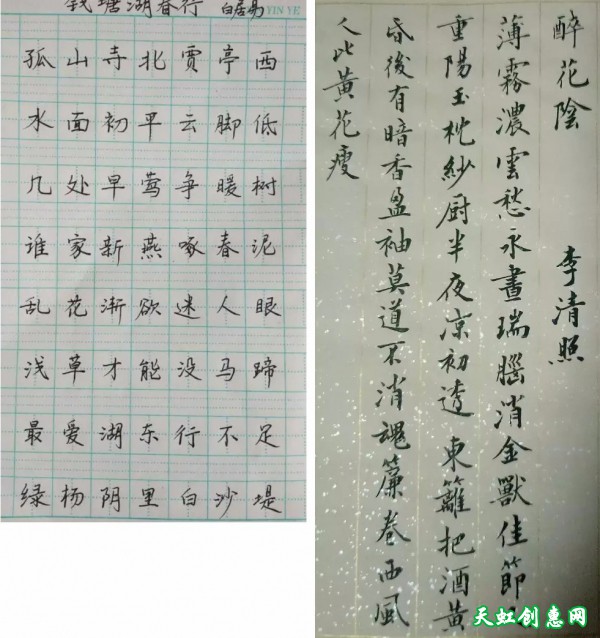 钱塘湖春行 白居易 YIN YE
孤山寺北贾亭西
水面初早云脚低
几处早莺争暖树
谁家新燕啄春泥
乱花渐欲迷人眼
浅草才能没马蹄
最爱湖东行不足
绿杨阴里白沙堤
醉花陰 李清照
薄霧濃雲愁永晝瑞腦消金獸佳節又
重陽玉枕紗厨半夜凉初透東籬把酒黃
昏後有暗香盈袖莫道不消魂簾卷西風
人比黃花瘦
天虹创惠网